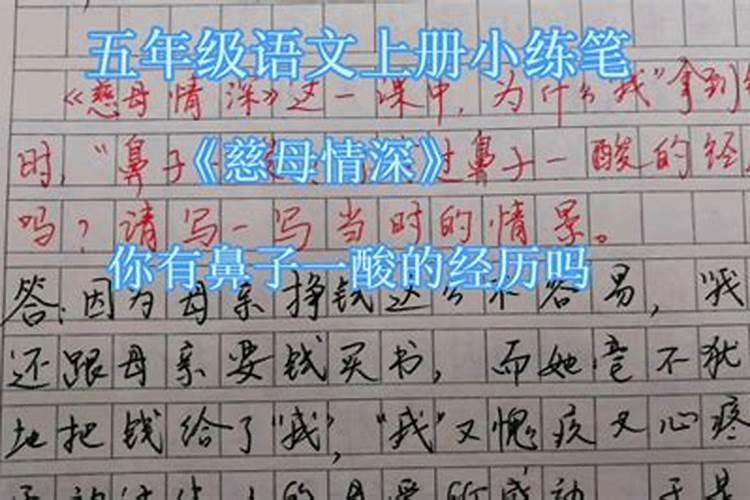 五年级语文上册小练笔
《慈母情深》这一课中,为什么"我"拿到
时,"鼻子一 过鼻子一酸的经
《慈母情深》
吗?请写一写当时的情景。
你有鼻子一酸的经历吗
答:因为母亲挣钱这么不容易,"我
还跟母亲要钱买书,而她竟不犹
地把钱给了"我","我"又愧疚又心疼